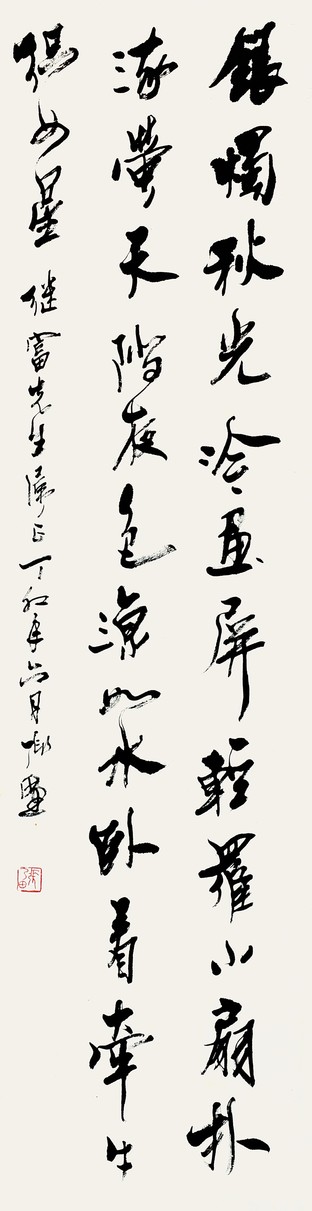 銀燭秋光冷畫屏輕羅小扇扑
流螢天階夜色涼如水卧看牽牛
織女星 继富先生正丁酉年六月